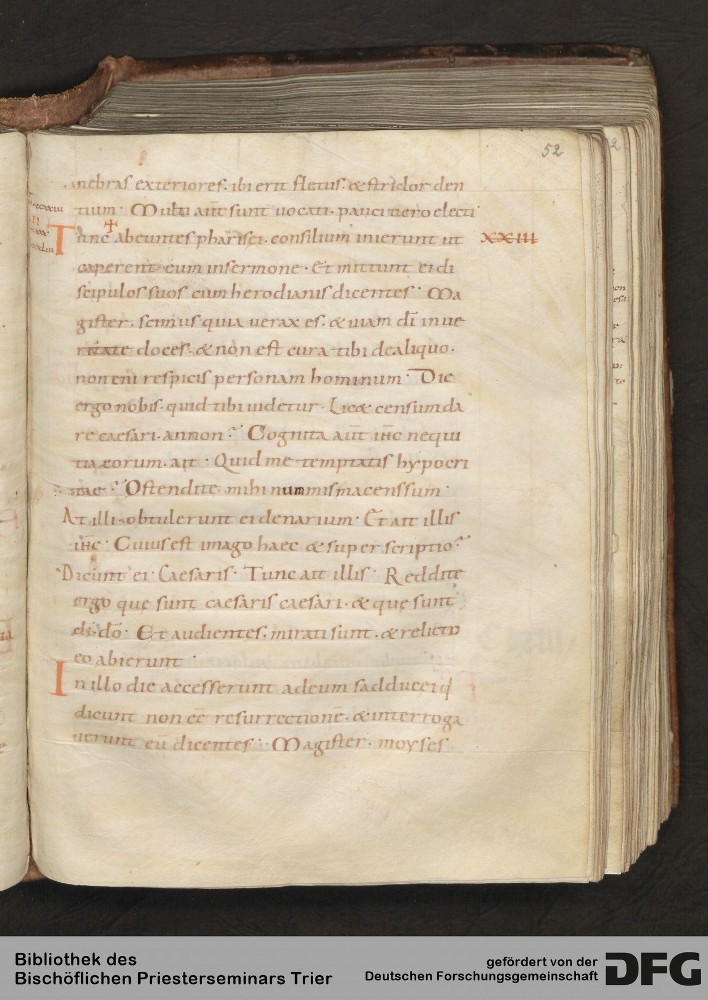 52
nebras exteriores. ibi erit fletus. & stridor den
tium. Multi aut̄ sunt uocati. pauci uero electi
Tunc abeuntes pharisei. consilium inierunt ut XXIII
caperent eum insermone. Et mittunt ei di
scipulos suos cum herodianis dicentes. Ma
gister. scimus quia uerax es. & uiam dī in ue
ritate doces. & non est cura tibi dealiquo.
non enī respicis personam hominum. Dic
ergo nobis. quid tibi uidetur. Lic& censum da
re caesari. an non? Cognita aut̄ ihc nequi
tia eorum. ait. Quid me temptatis hypocri
tae? Ostendite mihi nummisma censsum
At illi obtulerunt ei denarium. Et ait illis
ihc. Cuius est imago haec & super scriptio?
Dicunt ei. Caesaris. Tunc ait illis. Reddite
ergo quę sunt caesaris caesari. & quę sunt
dī. dō. Et audientes. mirati sunt. & relicto
eo abierunt
In illo die accesserunt adeum sadducei q̄
dicunt non eē resurrectionē. & interroga
uerunt eū dicentes. Magister. moyses
Bibliothek des
Bischöflichen Priesterseminars Trier
gefördert von der
Deutschen Forschungsgemeinschaft
DFG